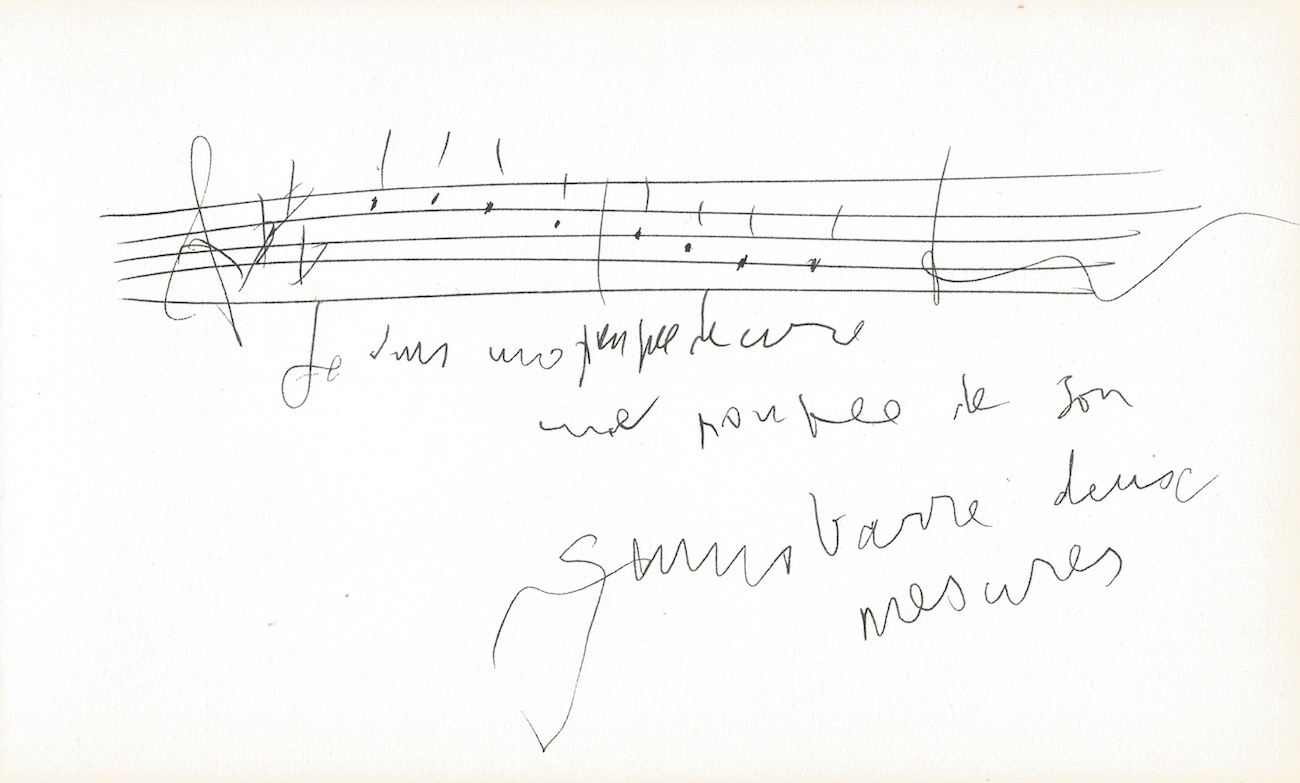 Je suis une poupee de cire
une poupee de son
Gainsbarre deux
mesures